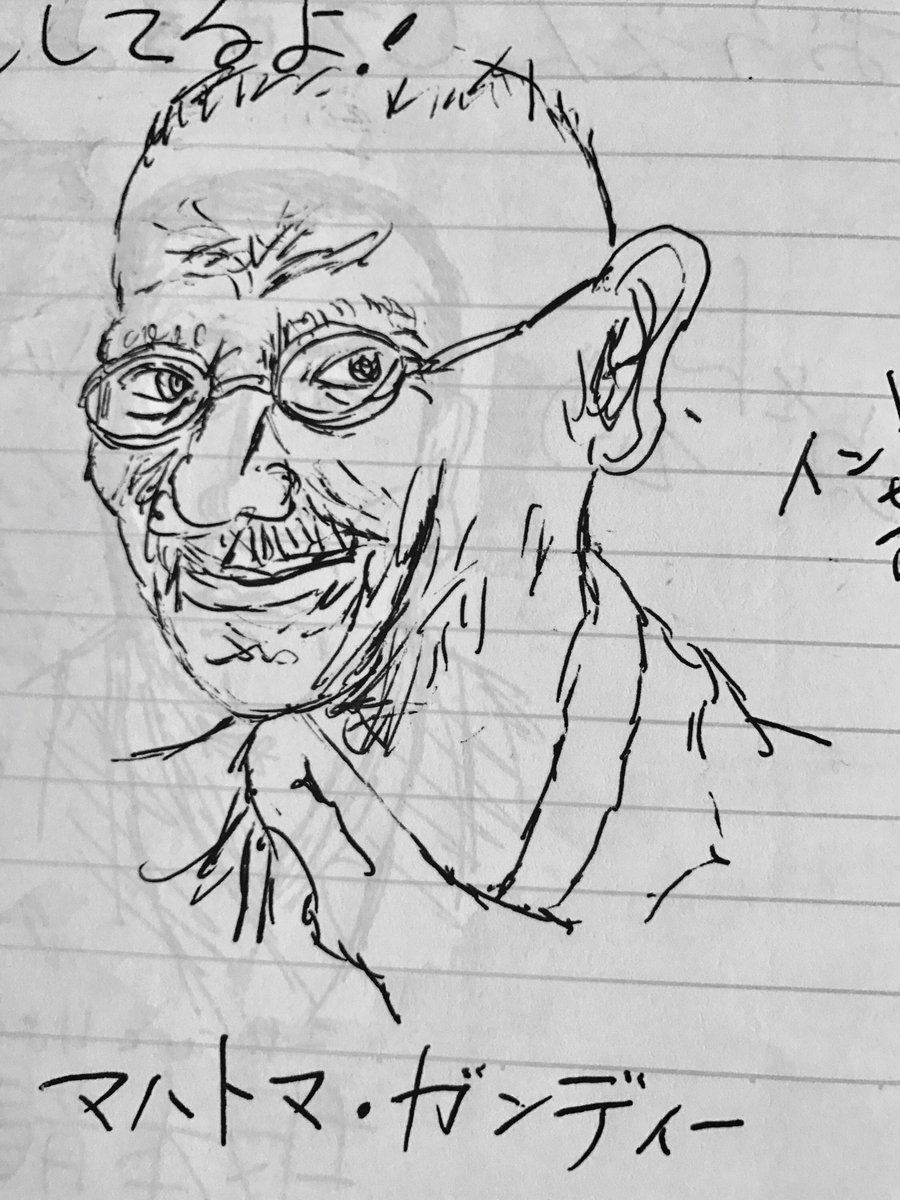 してるよ!
イン
マハトマ・ガンディー